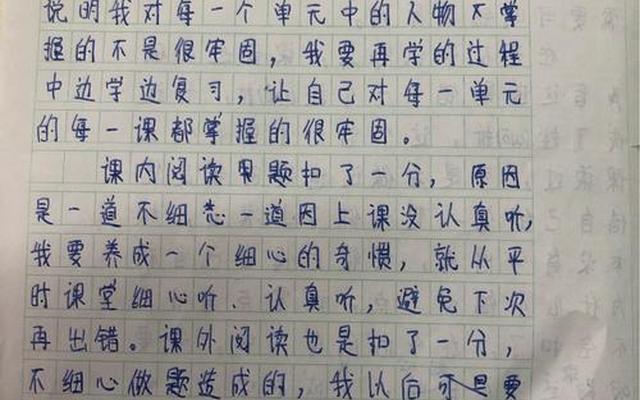 说明我对每一个单元中的人物不掌
握的不是很牢固，我要再学的过程
中边学边复习，让自己对每一单元
的每一课都掌握的很牢固。
课内阅读果题扣了一分，原因
是一道不细态一道因上课没认真听，
我要养成一个细心的奇惯，就从平
时课堂细心听．认真听，避免下次
再出错。课外阅读也是扣了一分，
不细心做题造成的，我以后可是要